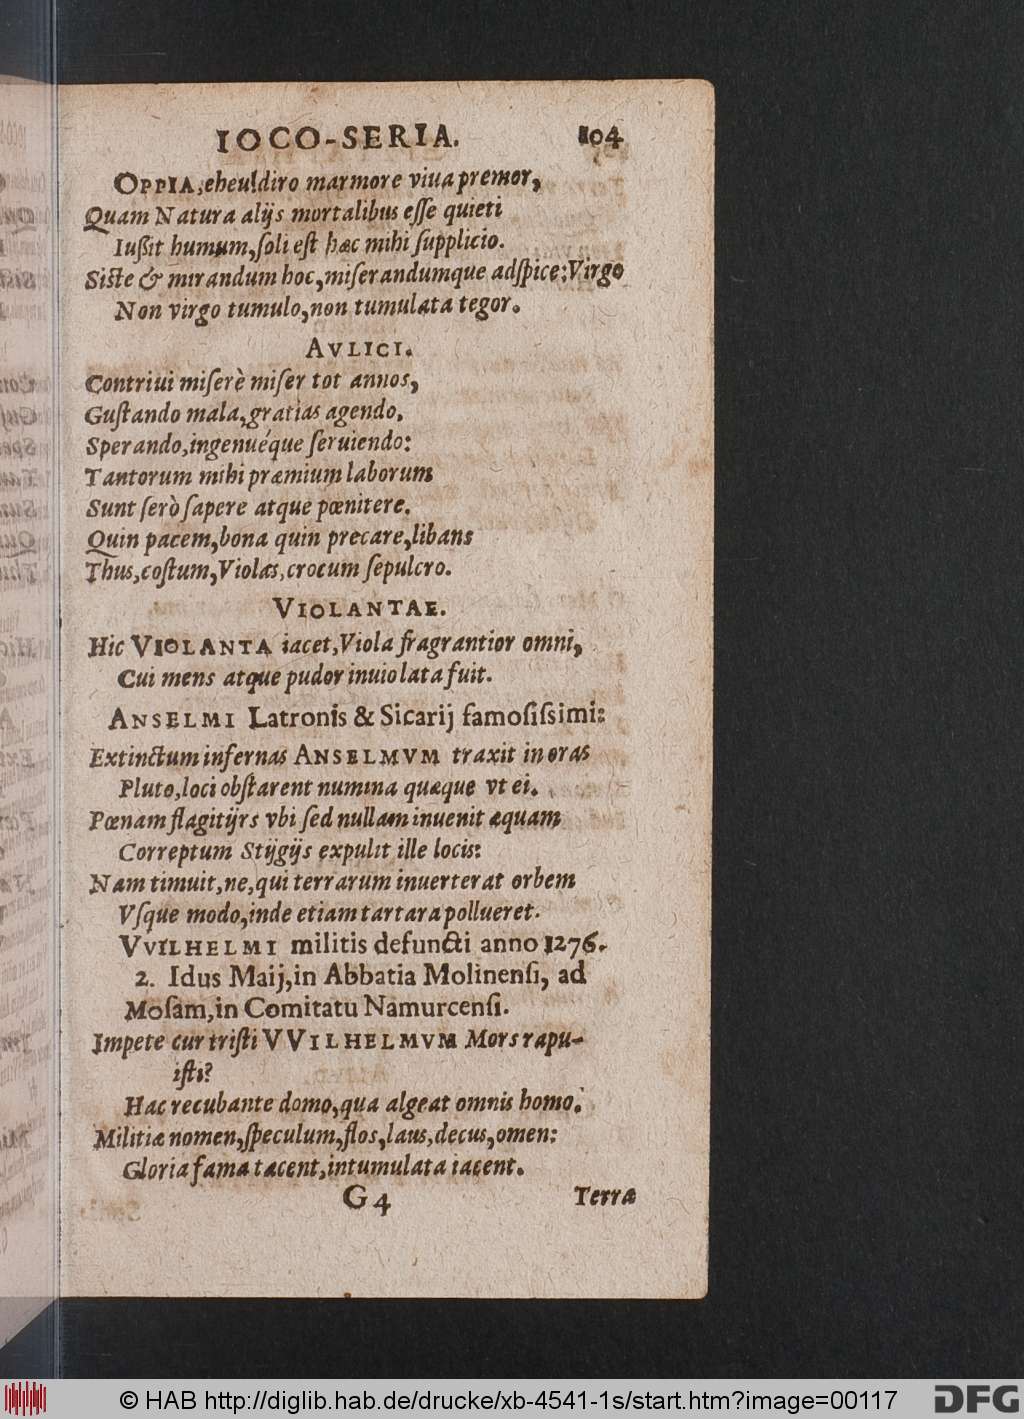 IOCO-SERIA. 104
OPPIA, eheu! diro marmore viua premor,
Quam Natura alijs mortalibus eſſe quieti
Iußit humum, ſoli eſt hæc mihi ſupplicio.
Siste & mirandum hoc, miſerandumque adſpice: Virgo
Non virgo tumulo, non tumulata tegor.
AVLICI.
Contriui miſerè miſer tot annos,
Guſtando mala, gratias agendo,
Sperando, ingenuéque ſeruiendo:
Tantorum mihi præmium laborum
Sunt ſerò ſapere atque pœnitere.
Quin pacem, bona quin precare, libans
Thus, coſtum, Violas, crocum ſepulcro.
VIOLANTAE.
Hic VIOLANTA iacet, Viola fragrantior omni,
Cui mens atque pudor inuiolata fuit.
ANSELMI Latronis & Sicarij famoſiſsimi:
Extinctum infernas ANSELMVM traxit in oras
Pluto, loci obſtarent numina quæque vt ei.
Pœnam flagitijrs vbi ſed nullam inuenit æquam
Correptum Stijgijs expulit ille locis:
Nam timuit, ne, qui terrarum inuerterat orbem
Vſque modo, inde etiam tartara pollueret.
VVILHELMI militis defuncti anno 1276.
2. Idus Maij, in Abbatia Molinenſi, ad
Moſam, in Comitatu Namurcenſi.
Impete cur triſti VVILHELMVM Mors rapu-
iſti?
Hac recubante domo, qua algeat omnis homo.
Militiæ nomen, ſpeculum, flos, laus, decus, omen:
Gloria fama tacent, intumulata iacent.
G 4 Terræ
© HAB http://diglib.hab.de/drucke/xb-4541-1s/start.htm?image=00117
DFG